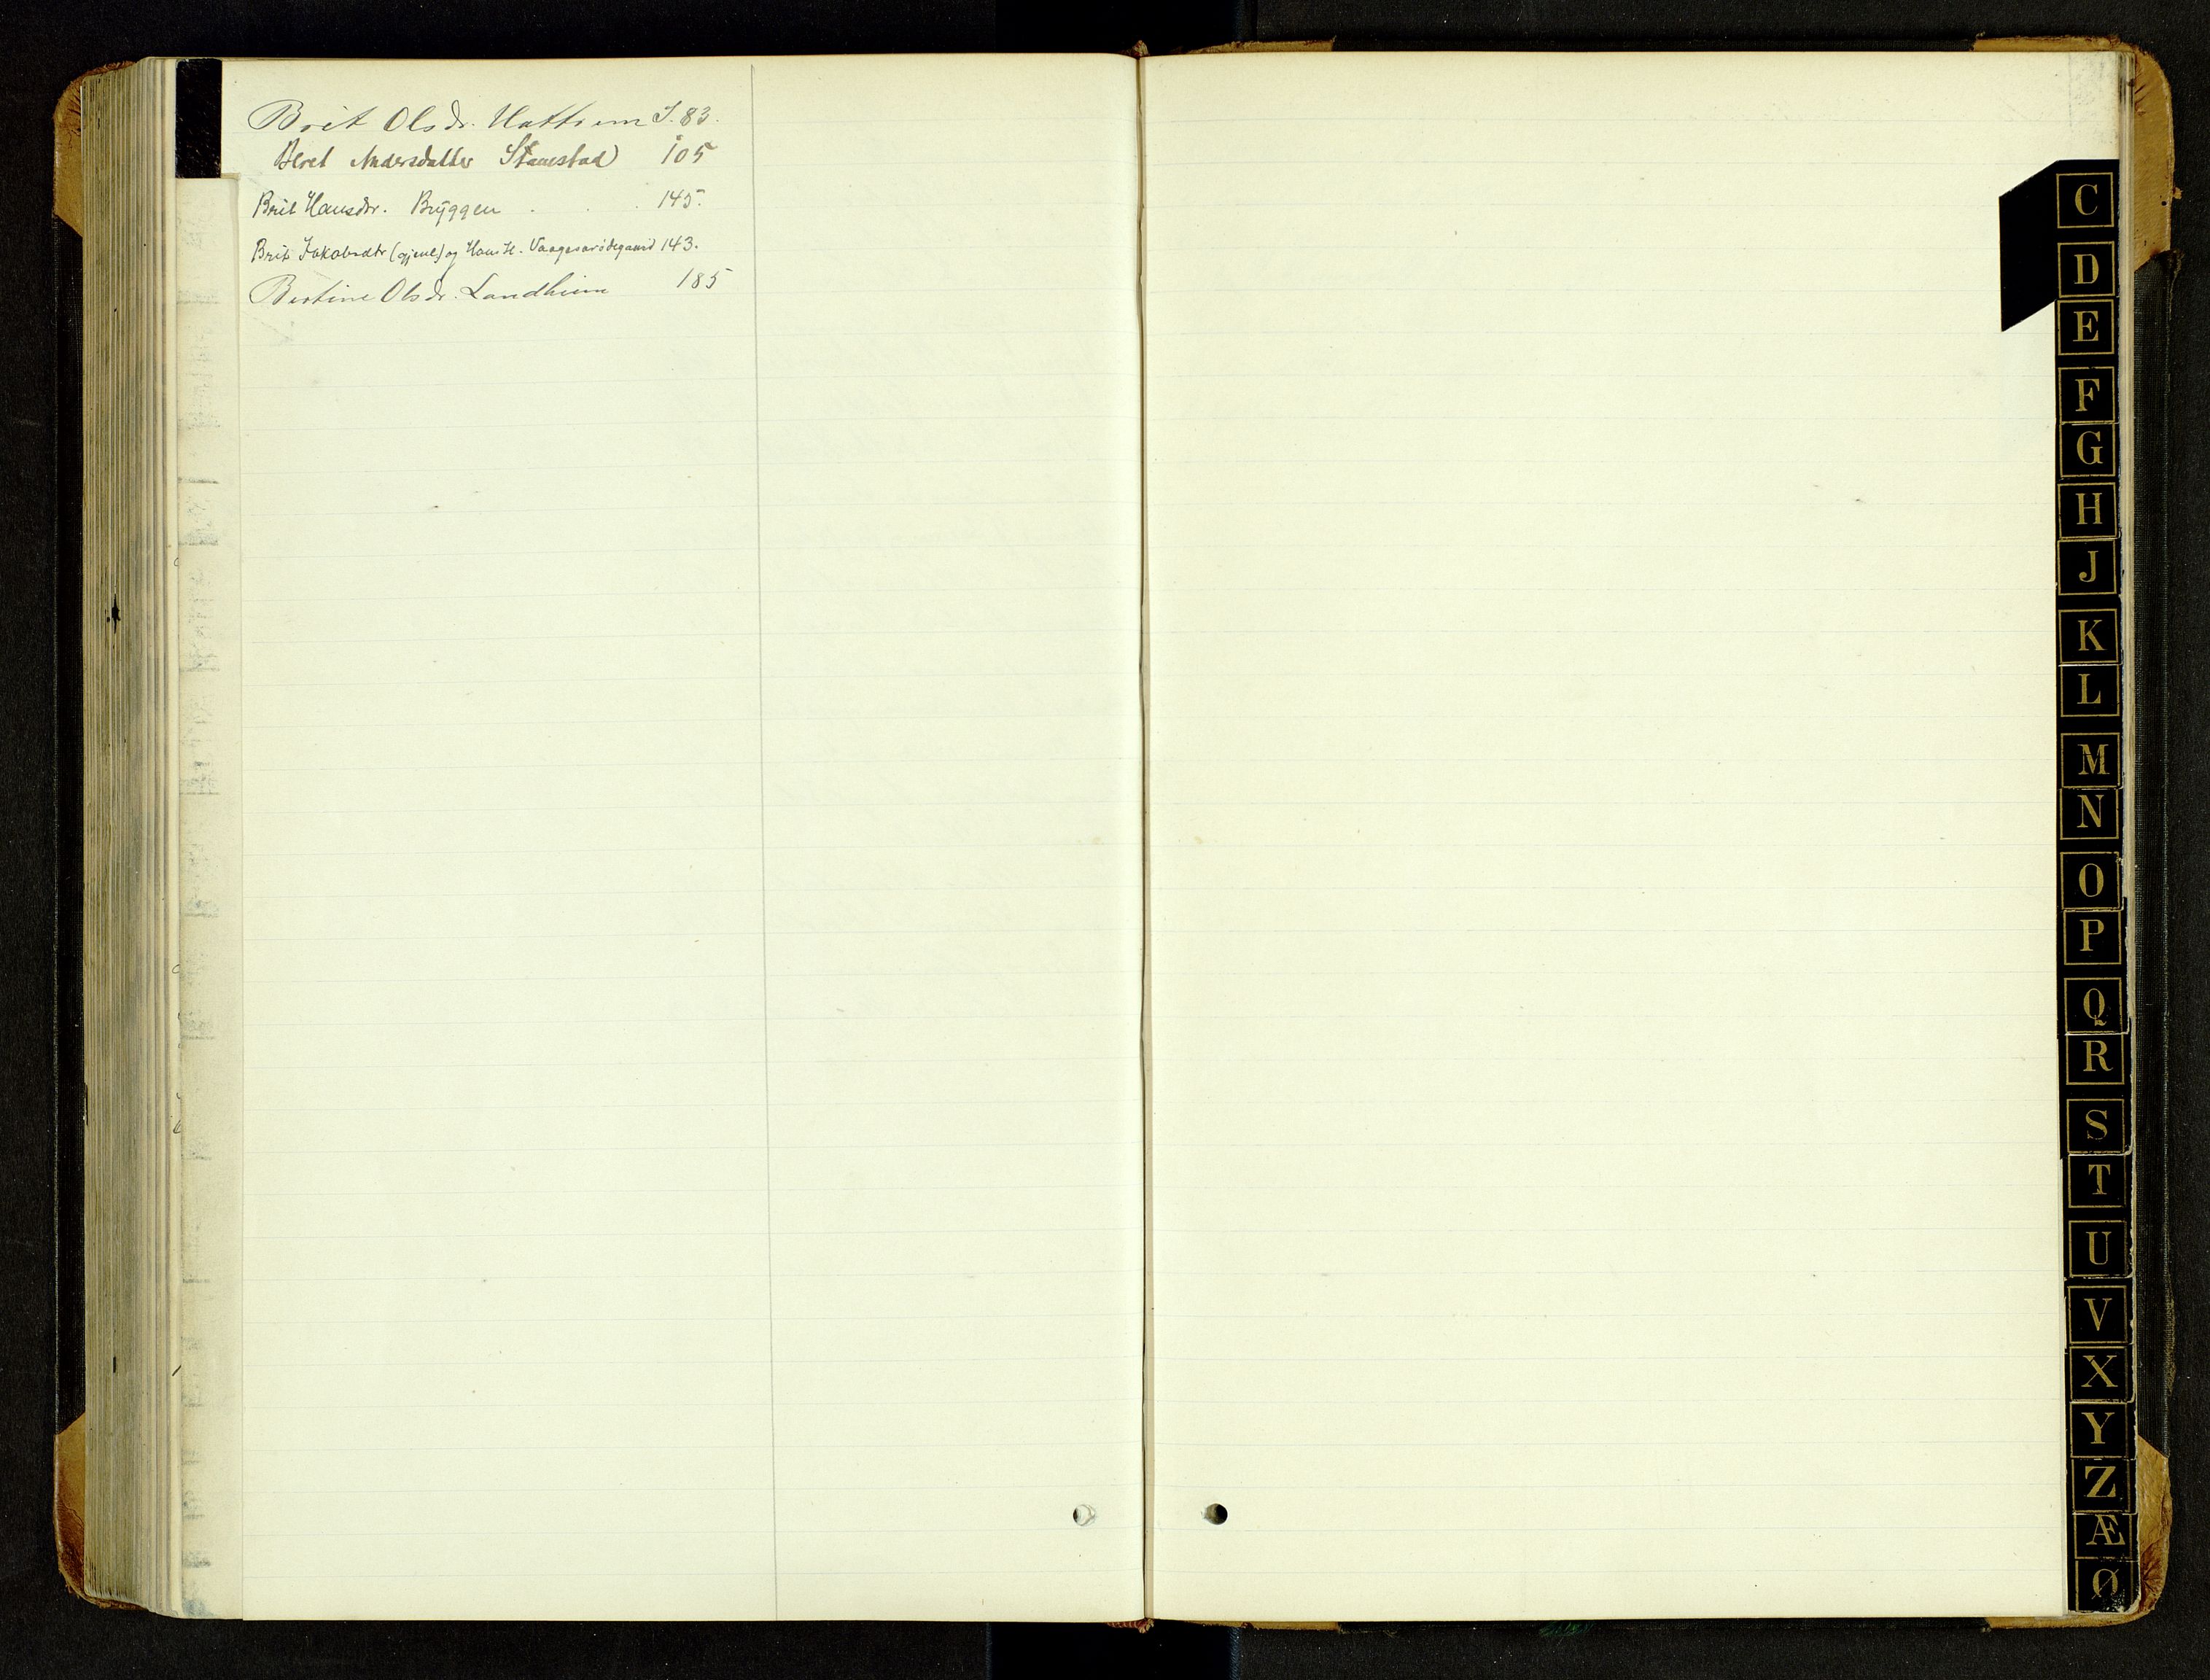 Brit Olsdr. Hattrem S. 83.
Beret Andersdatter Stavestad 105
Brit Hansdtr. Bryggen . . . 145.
Brit Jakobsdtr (gjenl) og Hans H. Vaagsvarødegaard 143.
Bertine Olsdr. Landheim 185
C
D
E
F
G
H
J
K
L
M
N
O
P
Q
R
S
T
U
V
X
Y
Z
Æ
Ø